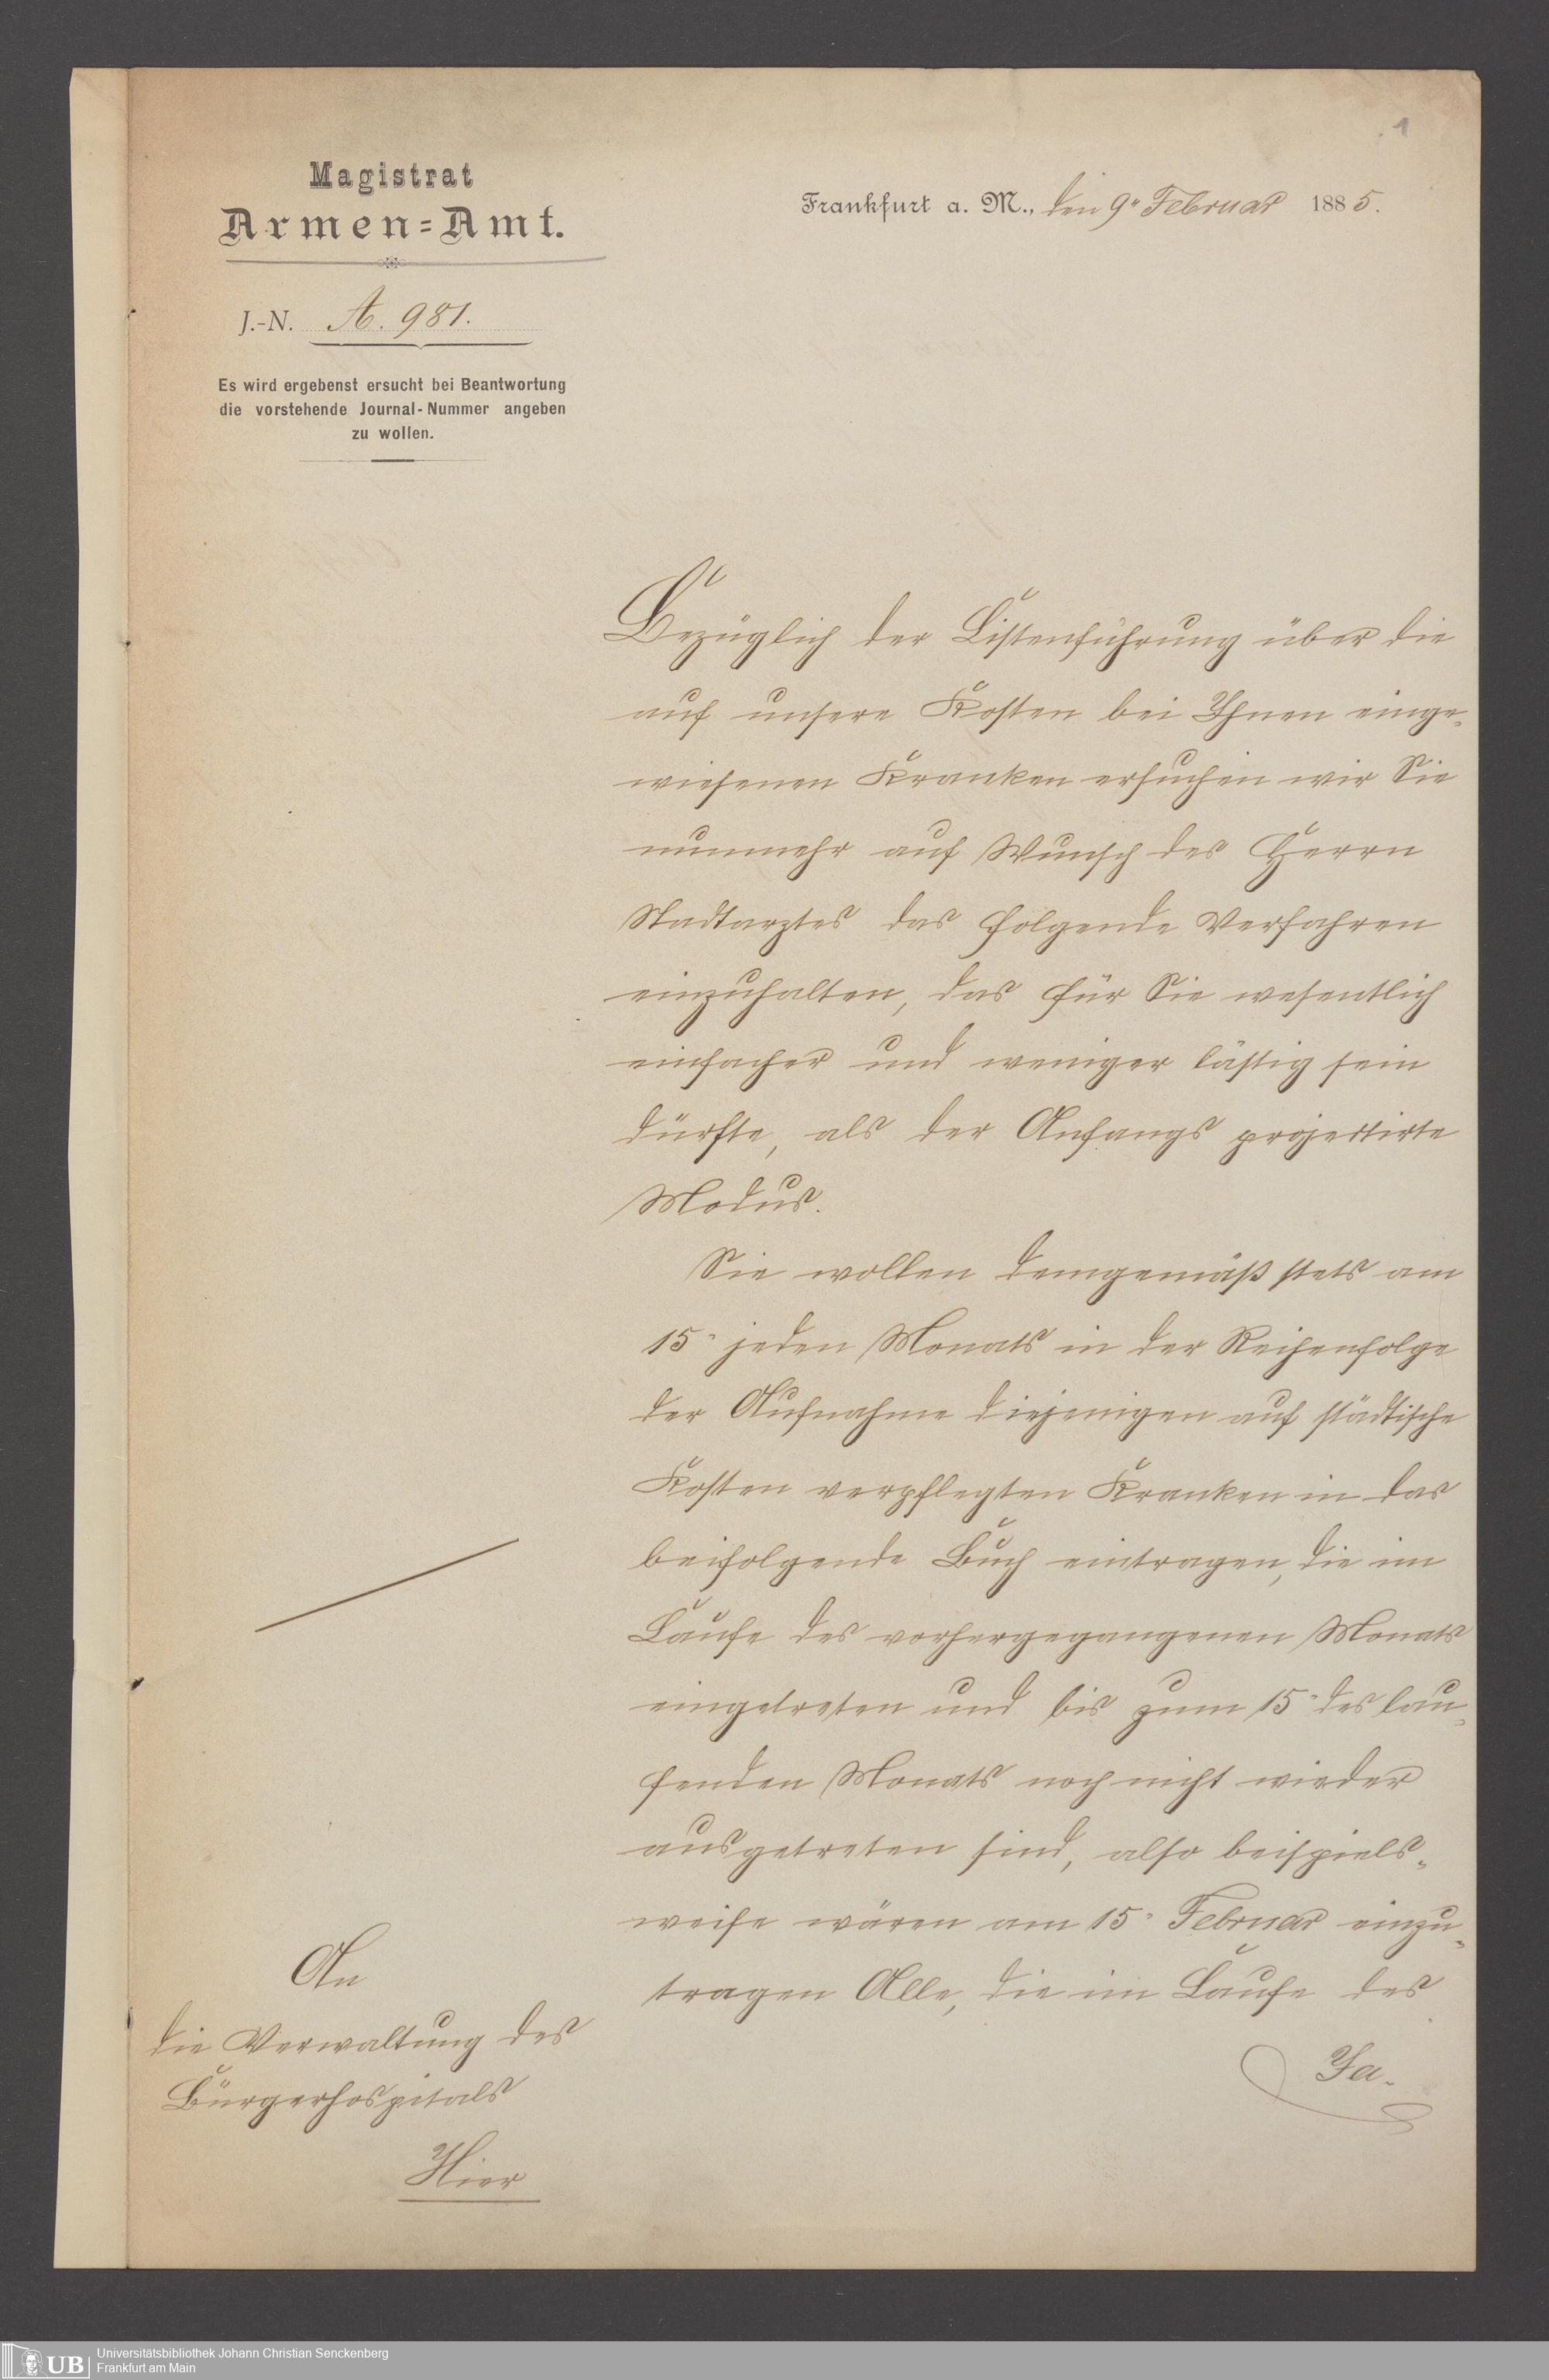 1
Magistrat
Armen=Amt.
Frankfurt a. M., den 9n Februar 1885.
J.-N. A. 981.
Es wird ergebenst ersucht bei Beantwortung
die vorstehende Journal-Nummer angeben
zu wollen.
Bezüglich der Listenführung über die
auf unsere Kosten bei Ihnen einge-
wiesenen Kranken ersuchen wir Sie
nunmehr auf Wunsch des Herrn
Stadtarztes das folgende Verfahren
einzuhalten, das für Sie wesentlich
einfacher und weniger lästig sein
dürfte, als der Anfangs projectirte
Modus.
Sie wollen demgemäß stets am
15n jeden Monats in der Reihenfolge
der Aufnahme diejenigen auf städtische
Kosten verpflegten Kranken in das
beifolgende Buch eintragen, die im
Laufe des vorhergegangenen Monats
eingetreten und bis zum 15n des lau-
fenden Monats noch nicht wieder
ausgetreten sind, also beispiels-
weise wären am 15n Februar einzu-
tragen Alle, die im Laufe des
Ja-
An
die Verwaltung des
Bürgerhospitals
Hier
UB
Universitätsbibliothek Johann Christian Senckenberg
Frankfurt am Main